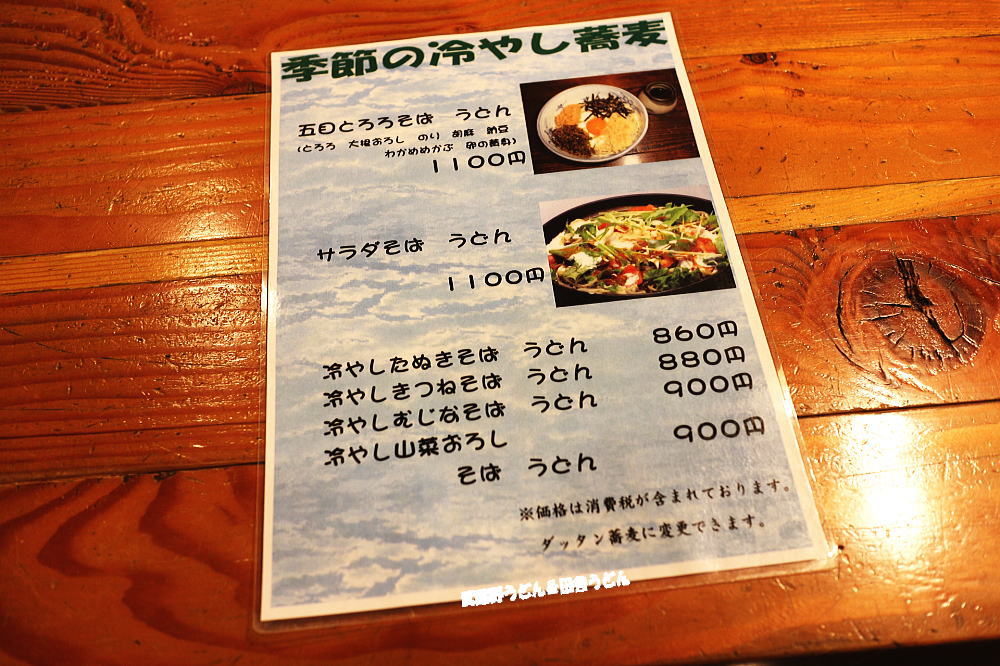 季節の冷やし蕎麦
五目とろろそば　うどん
(とろろ　大根おろし　のり　胡麻　納豆
わかめめかぶ　卵の黄身)
1100円
サラダそば　うどん
1100円
冷やしたぬきそば　うどん　860円
冷やしきつねそば　うどん　880円
冷やしむじなそば　うどん　900円
冷やし山菜おろし
そば　うどん　900円
※価格は消費税が含まれております。
ダッタン蕎麦に変更できます。
うどん&田舎うどん